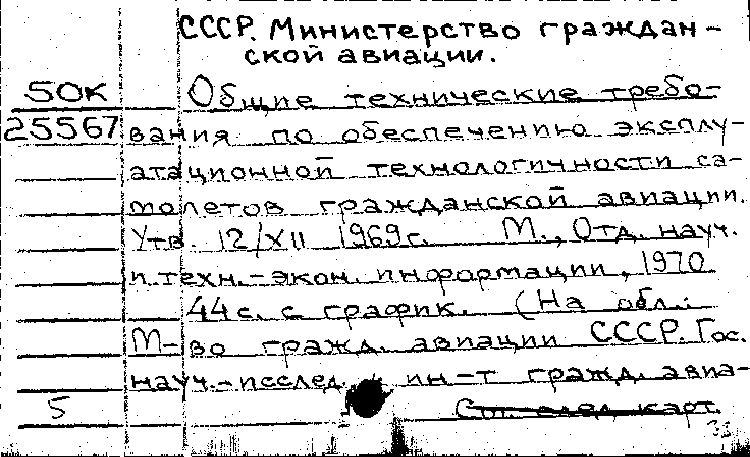 СССР. Министерство граждан-
ской авиации.
50к Общие технические требо-
25567 вания по обеспечению эксплу-
атационной технологичности са-
молетов гражданской авиации.
Утв. 12/XII 1969г. М., Отд. науч.
и техн.-экон. информации, 1970
44 с. с график. (На обл.:
М-во гражд. авиации СССР. Гос.
науч.-исслед. ин-т гражд. авиа-
5 См. след. карт.